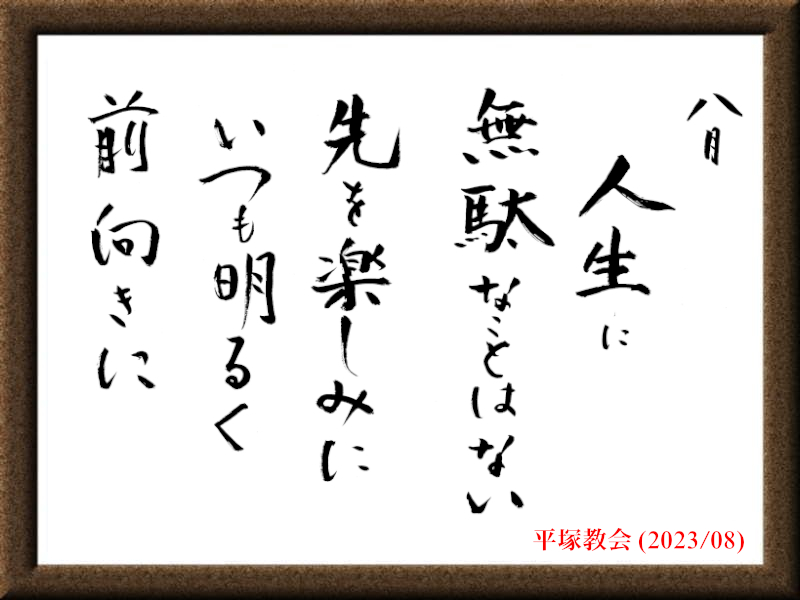 八月
人生に
無駄なことはない
先を楽しみに
いつも明るく
前向きに
平塚教会 (2023/08)